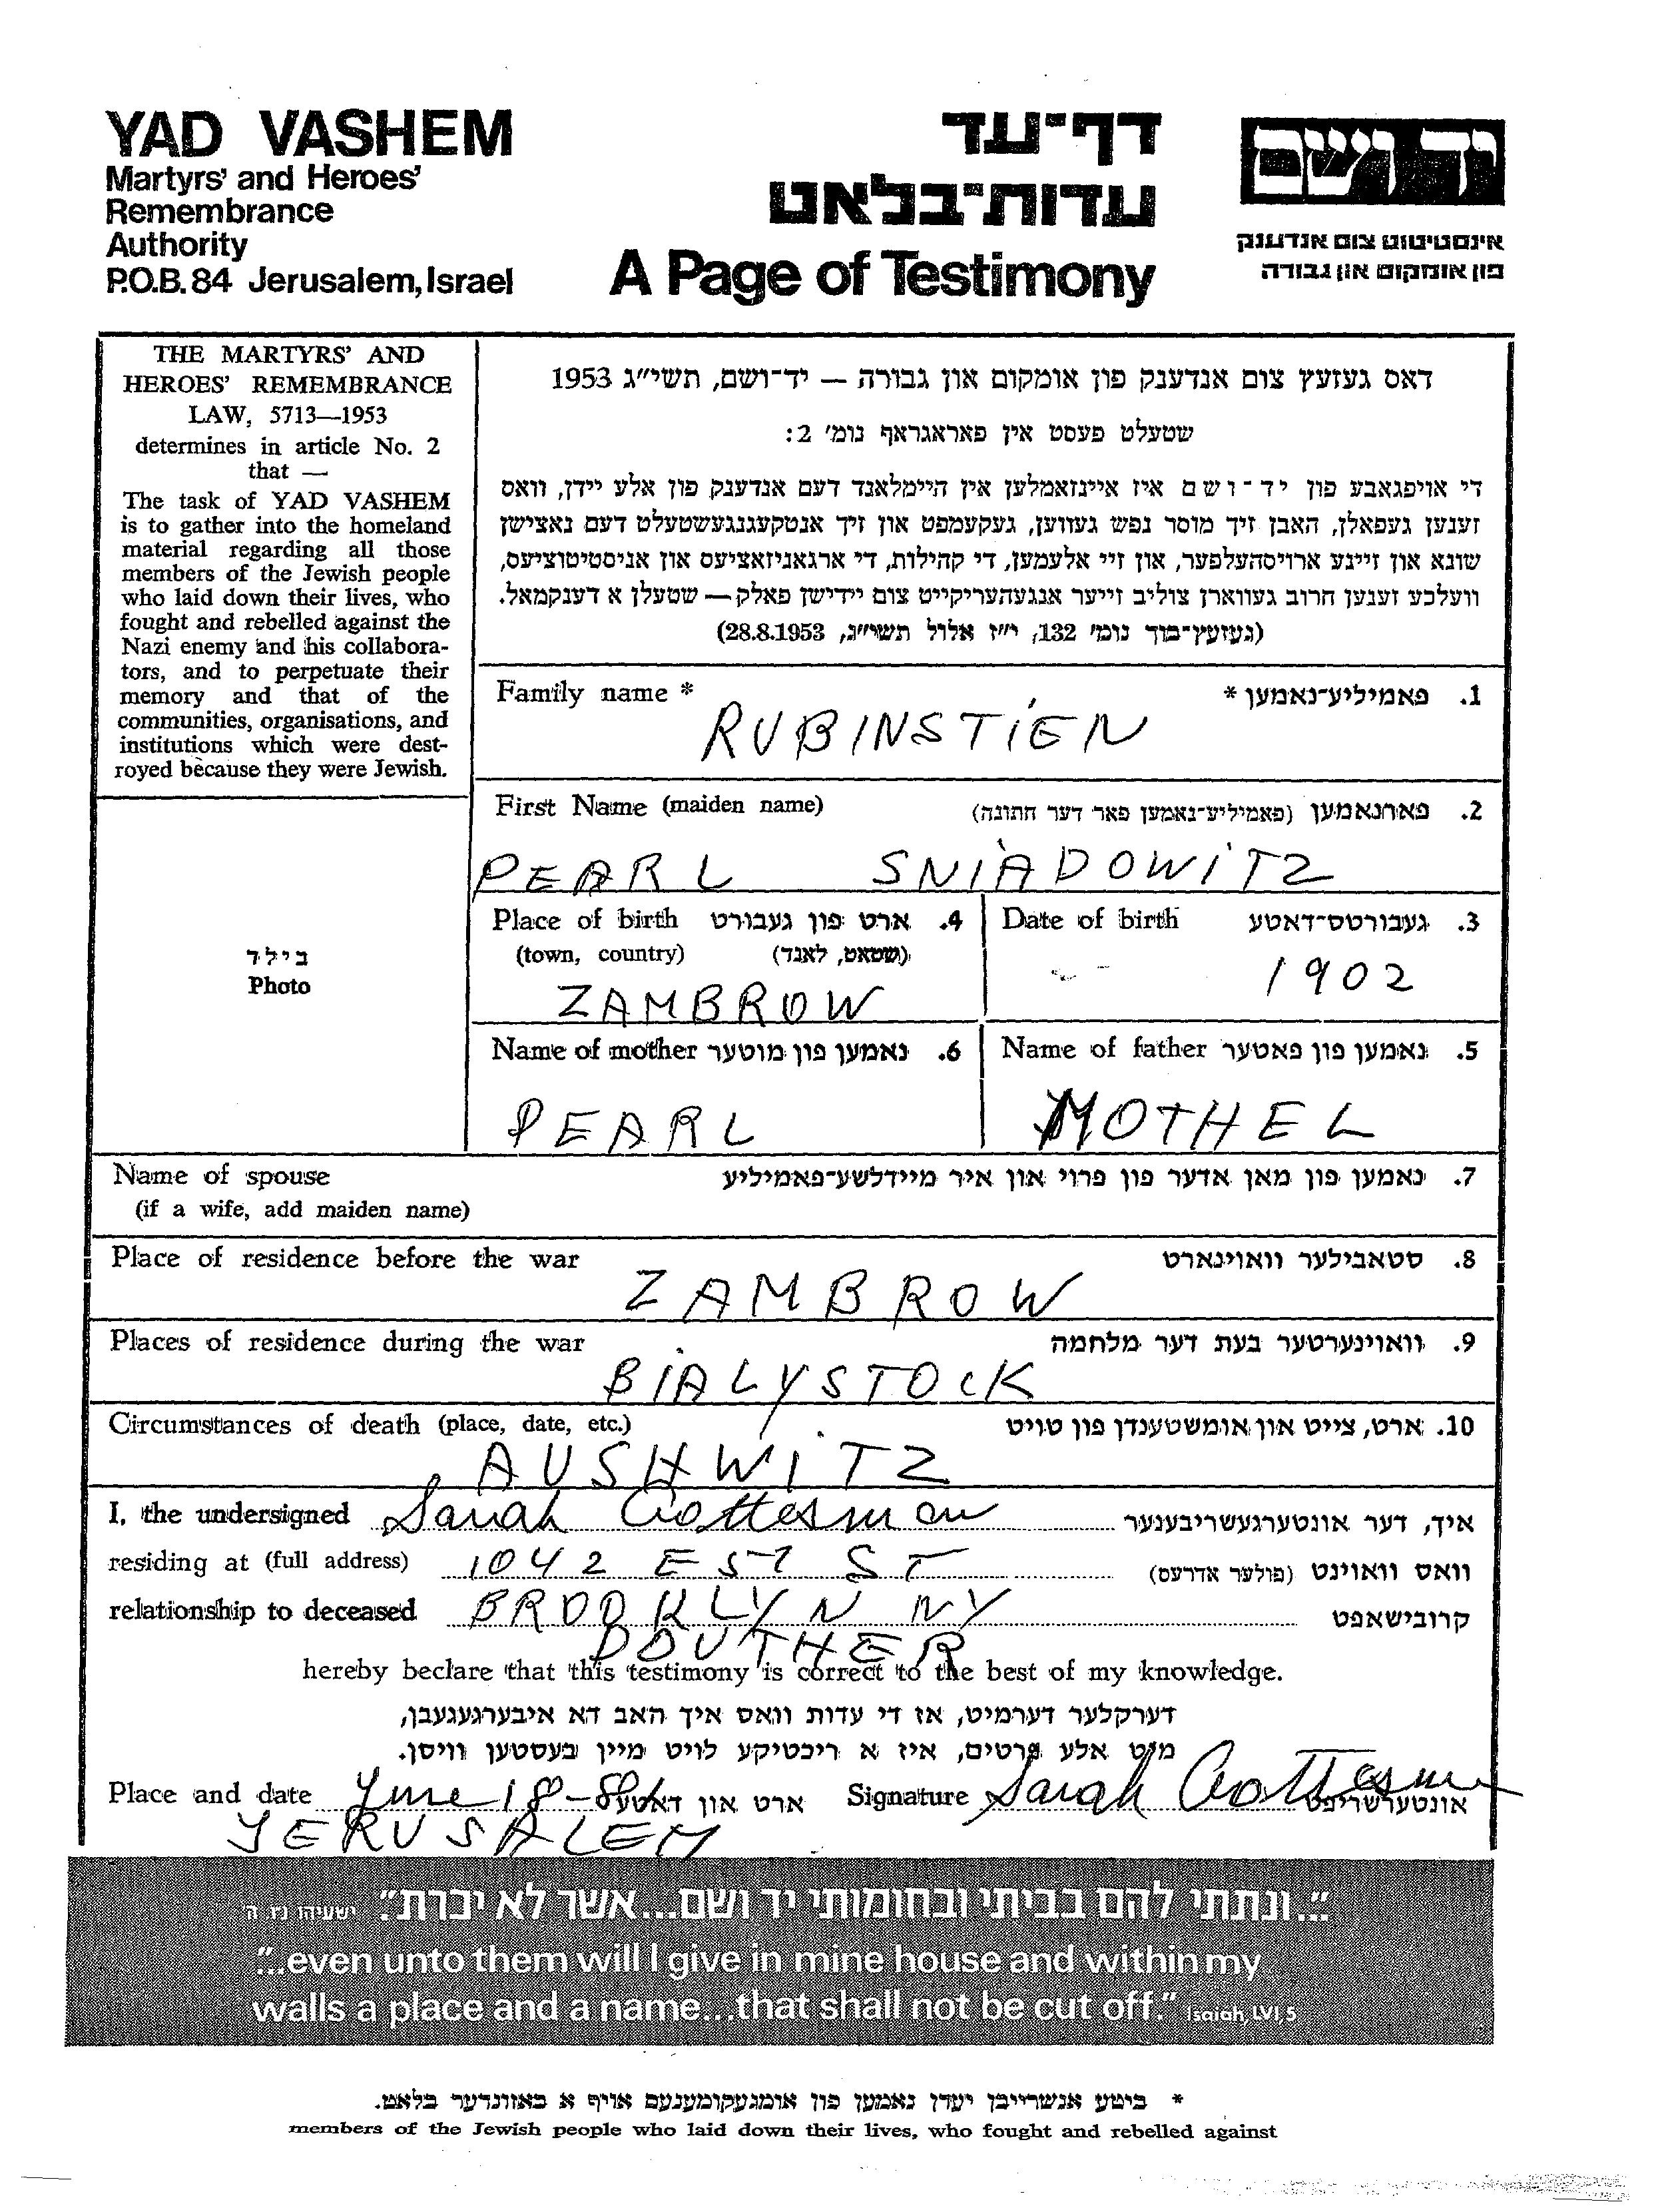 YAD VASHEM
Martyrs' and Heroes'
Remembrance
Authority
P.O.B. 84 Jerusalem, Israel
דף־עד
עדות־בלאט
A Page of Testimony
יד ושם
אינסטיטוט צום אנדענק
פון אומקום און גבורה
THE MARTYRS' AND
HEROES' REMEMBRANCE
LAW, 5713—1953
determines in article No. 2
that —
The task of YAD VASHEM
is to gather into the homeland
material regarding all those
members of the Jewish people
who laid down their lives, who
fought and rebelled against the
Nazi enemy and his collabora-
tors, and to perpetuate their
memory and that of the
communities, organisations, and
institutions which were dest-
royed because they were Jewish.
דאס געזעץ צום אנדענק פון אומקום און גבורה — יד־ושם, תשי״ג 1953
שטעלט פעסט אין פאראגראף נומ׳ 2:
די אויפגאבע פון יד־ושם איז איינזאמלען אין היימלאנד דעם אנדענק פון אלע יידן, וואס
זענען געפאלן, האבן זיך מוסר נפש געווען, געקעמפט און זיך אנטקעגנגעשטעלט דעם נאצישן
שונא און זיינע ארויסהעלפער, און זיי אלעמען, די קהילות, די ארגאניזאציעס און אניסטיטוציעס,
וועלכע זענען חרוב געווארן צוליב זייער אנגעהעריקייט צום יידישן פאלק — שטעלן א דענקמאל.
(געזעץ־בוך נומ׳ 132, י״ז אלול תשי״ג, 28.8.1953)
Family name * פאמיליע־נאמען * .1
RUBINSTIEN
First Name (maiden name) פארנאמען (פאמיליע־נאמען פאר דער חתונה) .2
PEARL SNIADOWITZ
Place of birth ארט פון געבורט .4
(town, country) (שטאט, לאנד)
ZAMBROW
Date of birth געבורטס־דאטע .3
1902
Name of mother נאמען פון מוטער .6
PEARL
Name of father נאמען פון פאטער .5
MOTHEL
בילד
Photo
Name of spouse נאמען פון מאן אדער פון פרוי און איר מיידלשע־פאמיליע .7
(if a wife, add maiden name)
Place of residence before the war סטאבילער וואוינארט .8
ZAMBROW
Places of residence during the war וואוינערטער בעת דער מלחמה .9
BIALYSTOCK
Circumstances of death (place, date, etc.) ארט, צייט און אומשטענדן פון טויט .10
AUSHWITZ
I, the undersigned Sarah Gottesman איך, דער אונטערגעשריבענער
residing at (full address) 1042 E 57 ST וואס וואוינט (פולער אדרעס)
relationship to deceased BROOKLYN NY קרובישאפט
DOUTHER
hereby beclare that this testimony is correct to the best of my knowledge.
דערקלער דערמיט, אז די עדות וואס איך האב דא איבערגעגעבן,
מיט אלע פרטים, איז א ריכטיקע לויט מיין בעסטען וויסן.
Place and date June 18 – ארט און דאטע Signature Sarah Gottesman אונטערשריפט
JERUSALEM
"...ונתתי להם בביתי ובחומותי יד ושם...אשר לא יכרת". ישעיהו נו ה׳
"...even unto them will I give in mine house and within my
walls a place and a name...that shall not be cut off." Isaiah, LVI,5
* ביטע אנשרייבן יעדן נאמען פון אומגעקומענעם אויף א באזונדער בלאט.
members of the Jewish people who laid down their lives, who fought and rebelled against